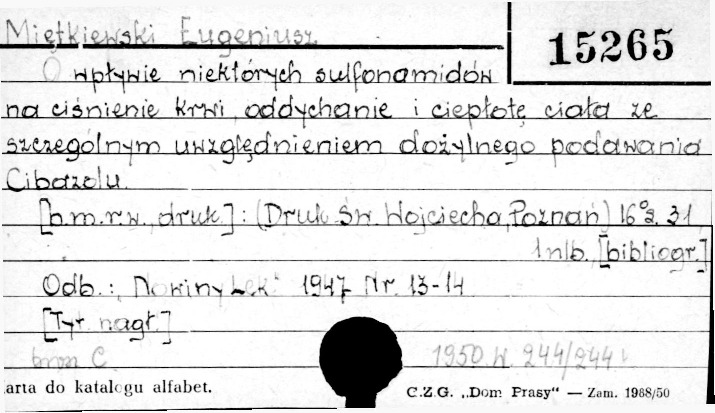 Miętkiewski Eugeniusz
15265
O wpływie niektórych sulfonamidów
na ciśnienie krwi, oddychanie i ciepłotę ciała ze
szczególnym uwzględnieniem dożylnego podawania
Cibazolu.
[b.m.r.w., druk.]: (Druk. Św. Wojciecha, Poznań) 16° s. 31,
1 nlb. [bibliogr.]
Odb.: "Nowiny Lek." 1947 Nr. 13-14
[Tyt. nagł.]
brosz C.
1950 W. 244/244
arta do katalogu alfabet.
C.Z.G. „Dom Prasy" — Zam. 1968/50